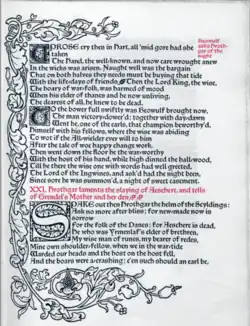 Beowulf
asks Hroth-
gar of the
night
UPROSE cry then in Hart, all 'mid gore had she
taken
The Hand, the well-known, and now care wrought anew
In the wicks was arisen. Naught well was the bargain
That on both halves they needs must be buying that tide
With the life-days of friends. Then the Lord King, the wise,
The hoary of war-folk, was harmed of mood
When his elder of thanes and he now unliving,
The dearest of all, he knew to be dead.
TO the bower full swiftly was Beowulf brought now,
The man victory-dower'd; together with day-dawn
Went he, one of the earls, that champion beworthy'd,
Himself with his fellows, where the wise was abiding
To wot if the All-wielder ever will to him
After the tale of woe happy change work.
Then went down the floor he the war-worthy
With the host of his hand, while high dinned the hall-wood,
Till he there the wise one with words had well greeted,
The Lord of the Ingwines, and ask'd had the night been,
Since sore he was summon'd, a night of sweet easement.
XXI. Hrothgar laments the slaying of Aeschere, and tells
of Grendel's Mother and her den.
SPAKE out then Hrothgar the helm of the Scyldings:
Ask no more after bliss; for new-made now is
sorrow
For the folk of the Danes; for Aeschere is dead,
He who was Yrmenlaf's elder of brethren,
My wise man of runes, my bearer of redes,
Mine own shoulder-fellow, when we in the war-tide
Warded our heads and the host on the host fell,
And the boars were a-crashing; e'en such should an earl be,